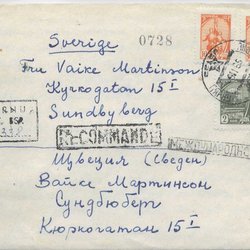 Sverige
0728
Fru Vaike Martinson
Kyrkogatan 15 I
Sundbyberg
RECOMMANDÉ
МЕЖДУНАРОДНОЕ
Швеция (Сведен)
Вайке Мартинсон
Сундбюберг
Кюркогатан 15 I